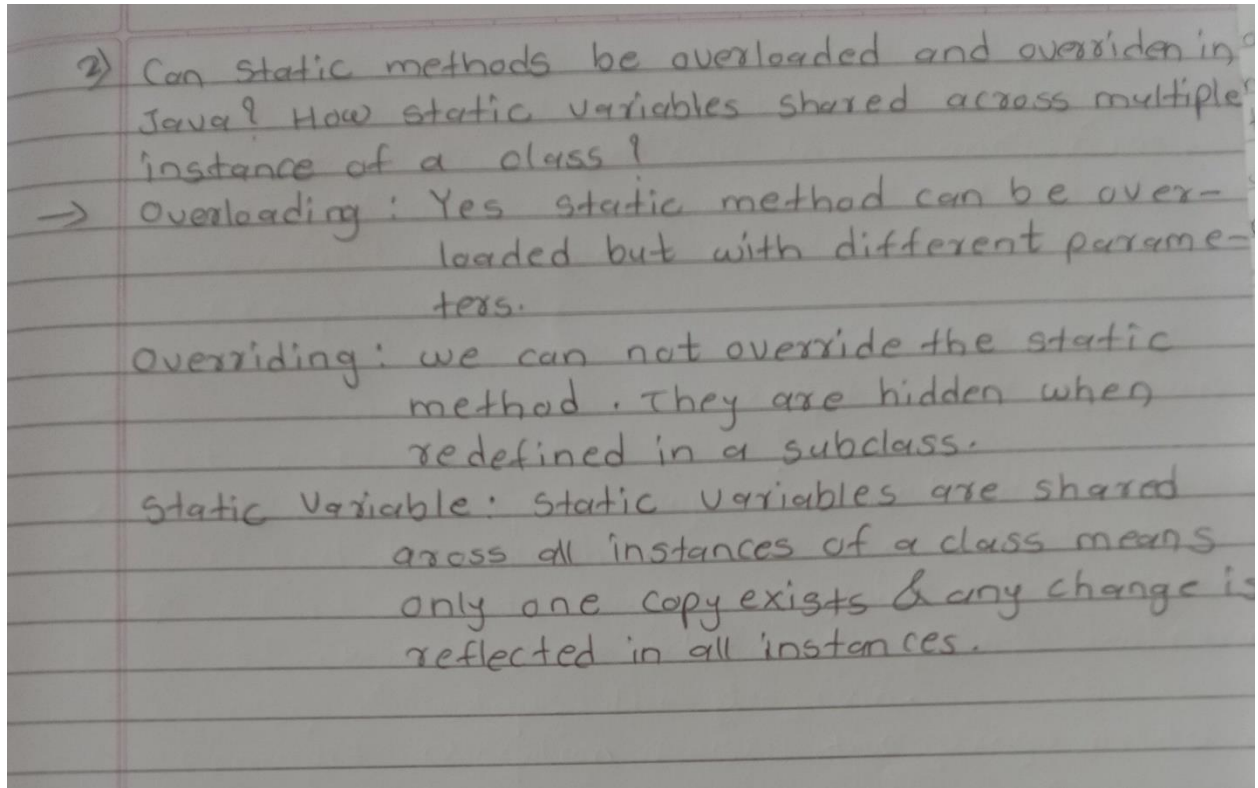 2) Can static methods be overloaded and overriden in
Java? How static variables shared across multiple
instance of a class?
→ Overloading : Yes static method can be over-
loaded but with different parame-
ters.
Overriding : we can not override the static
method. They are hidden when
redefined in a subclass.
Static Variable : Static variables are shared
aross all instances of a class means
only one copy exists & any change is
reflected in all instances.